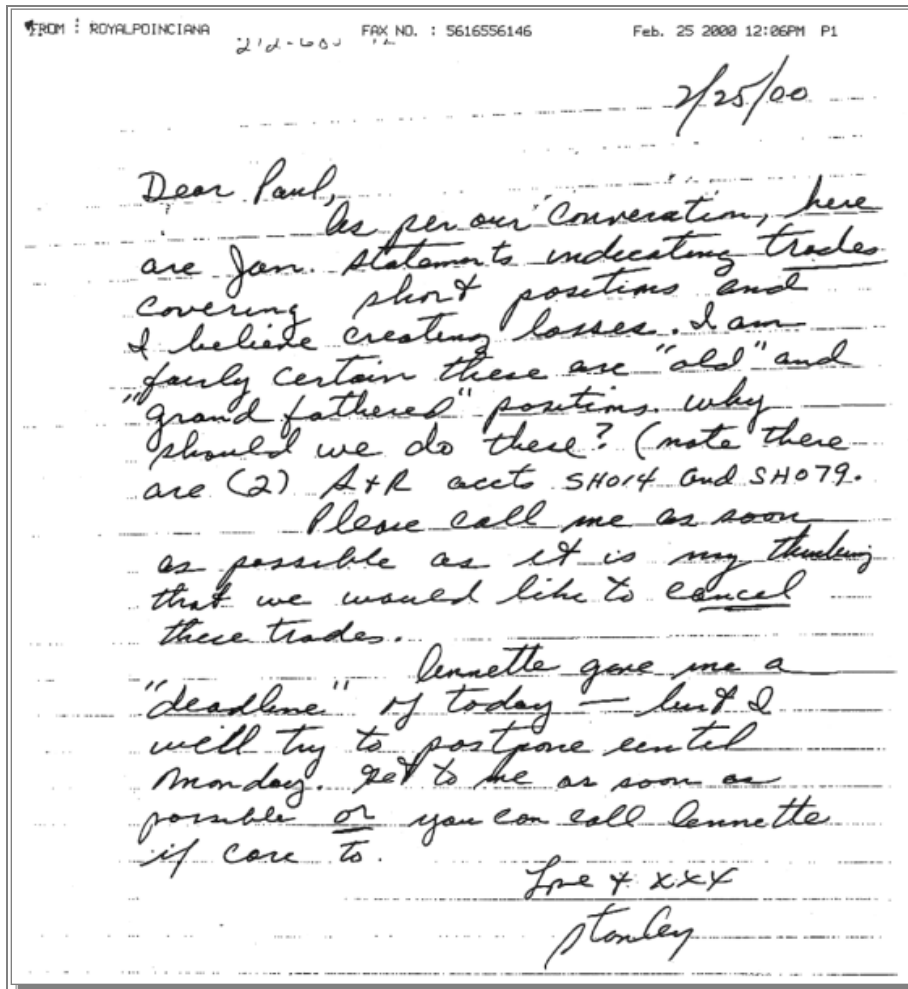 FROM : ROYALPOINCIANA FAX NO. : 5616556146 Feb. 25 2000 12:06PM P1
2/25/00
Dear Paul,
As per our conversation, here
are Jan. statements indicating trades
covering short positions and
I believe creating losses. I am
fairly certain these are "old" and
"grand fathered" positions. why
should we do these? (note there
are (2) A+R accts SHO14 and SHO79.
Please call me as soon
as possible as it is my thinking
that we would like to cancel
these trades.
Annette gave me a
"deadline" of today — but I
will try to postpone until
Monday. get to me as soon as
possible or you can call Annette
if care to.
Love + xxx
Stanley